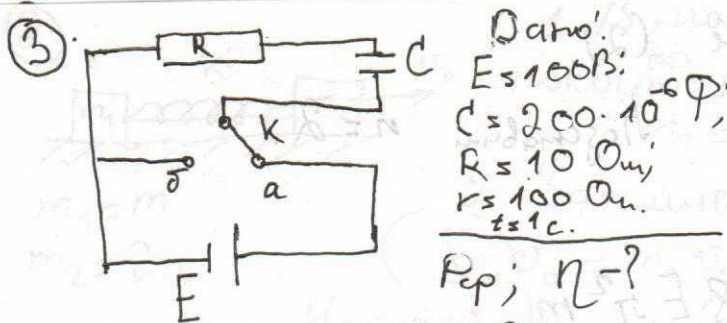 3
R
C
К
б
а
E
Дано:
E = 100 В;
C = 200·10⁻⁶ Ф;
R = 10 Ом;
r = 100 Ом.
t = 1 с.
Pср; η - ?